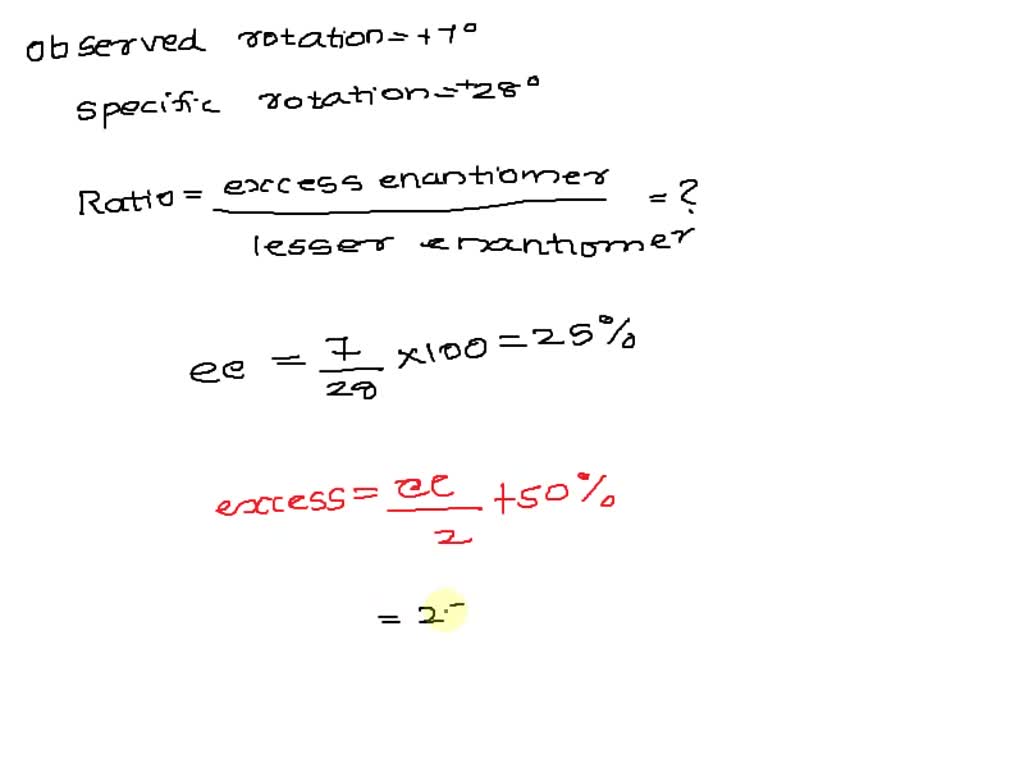 observed rotation=+7°
specific rotation=+28°
Ratio= excess enantiomer = ?
lesser enantiomer
ee = 7/28 ×100 = 25%
excess = ee/2 +50%
= 2